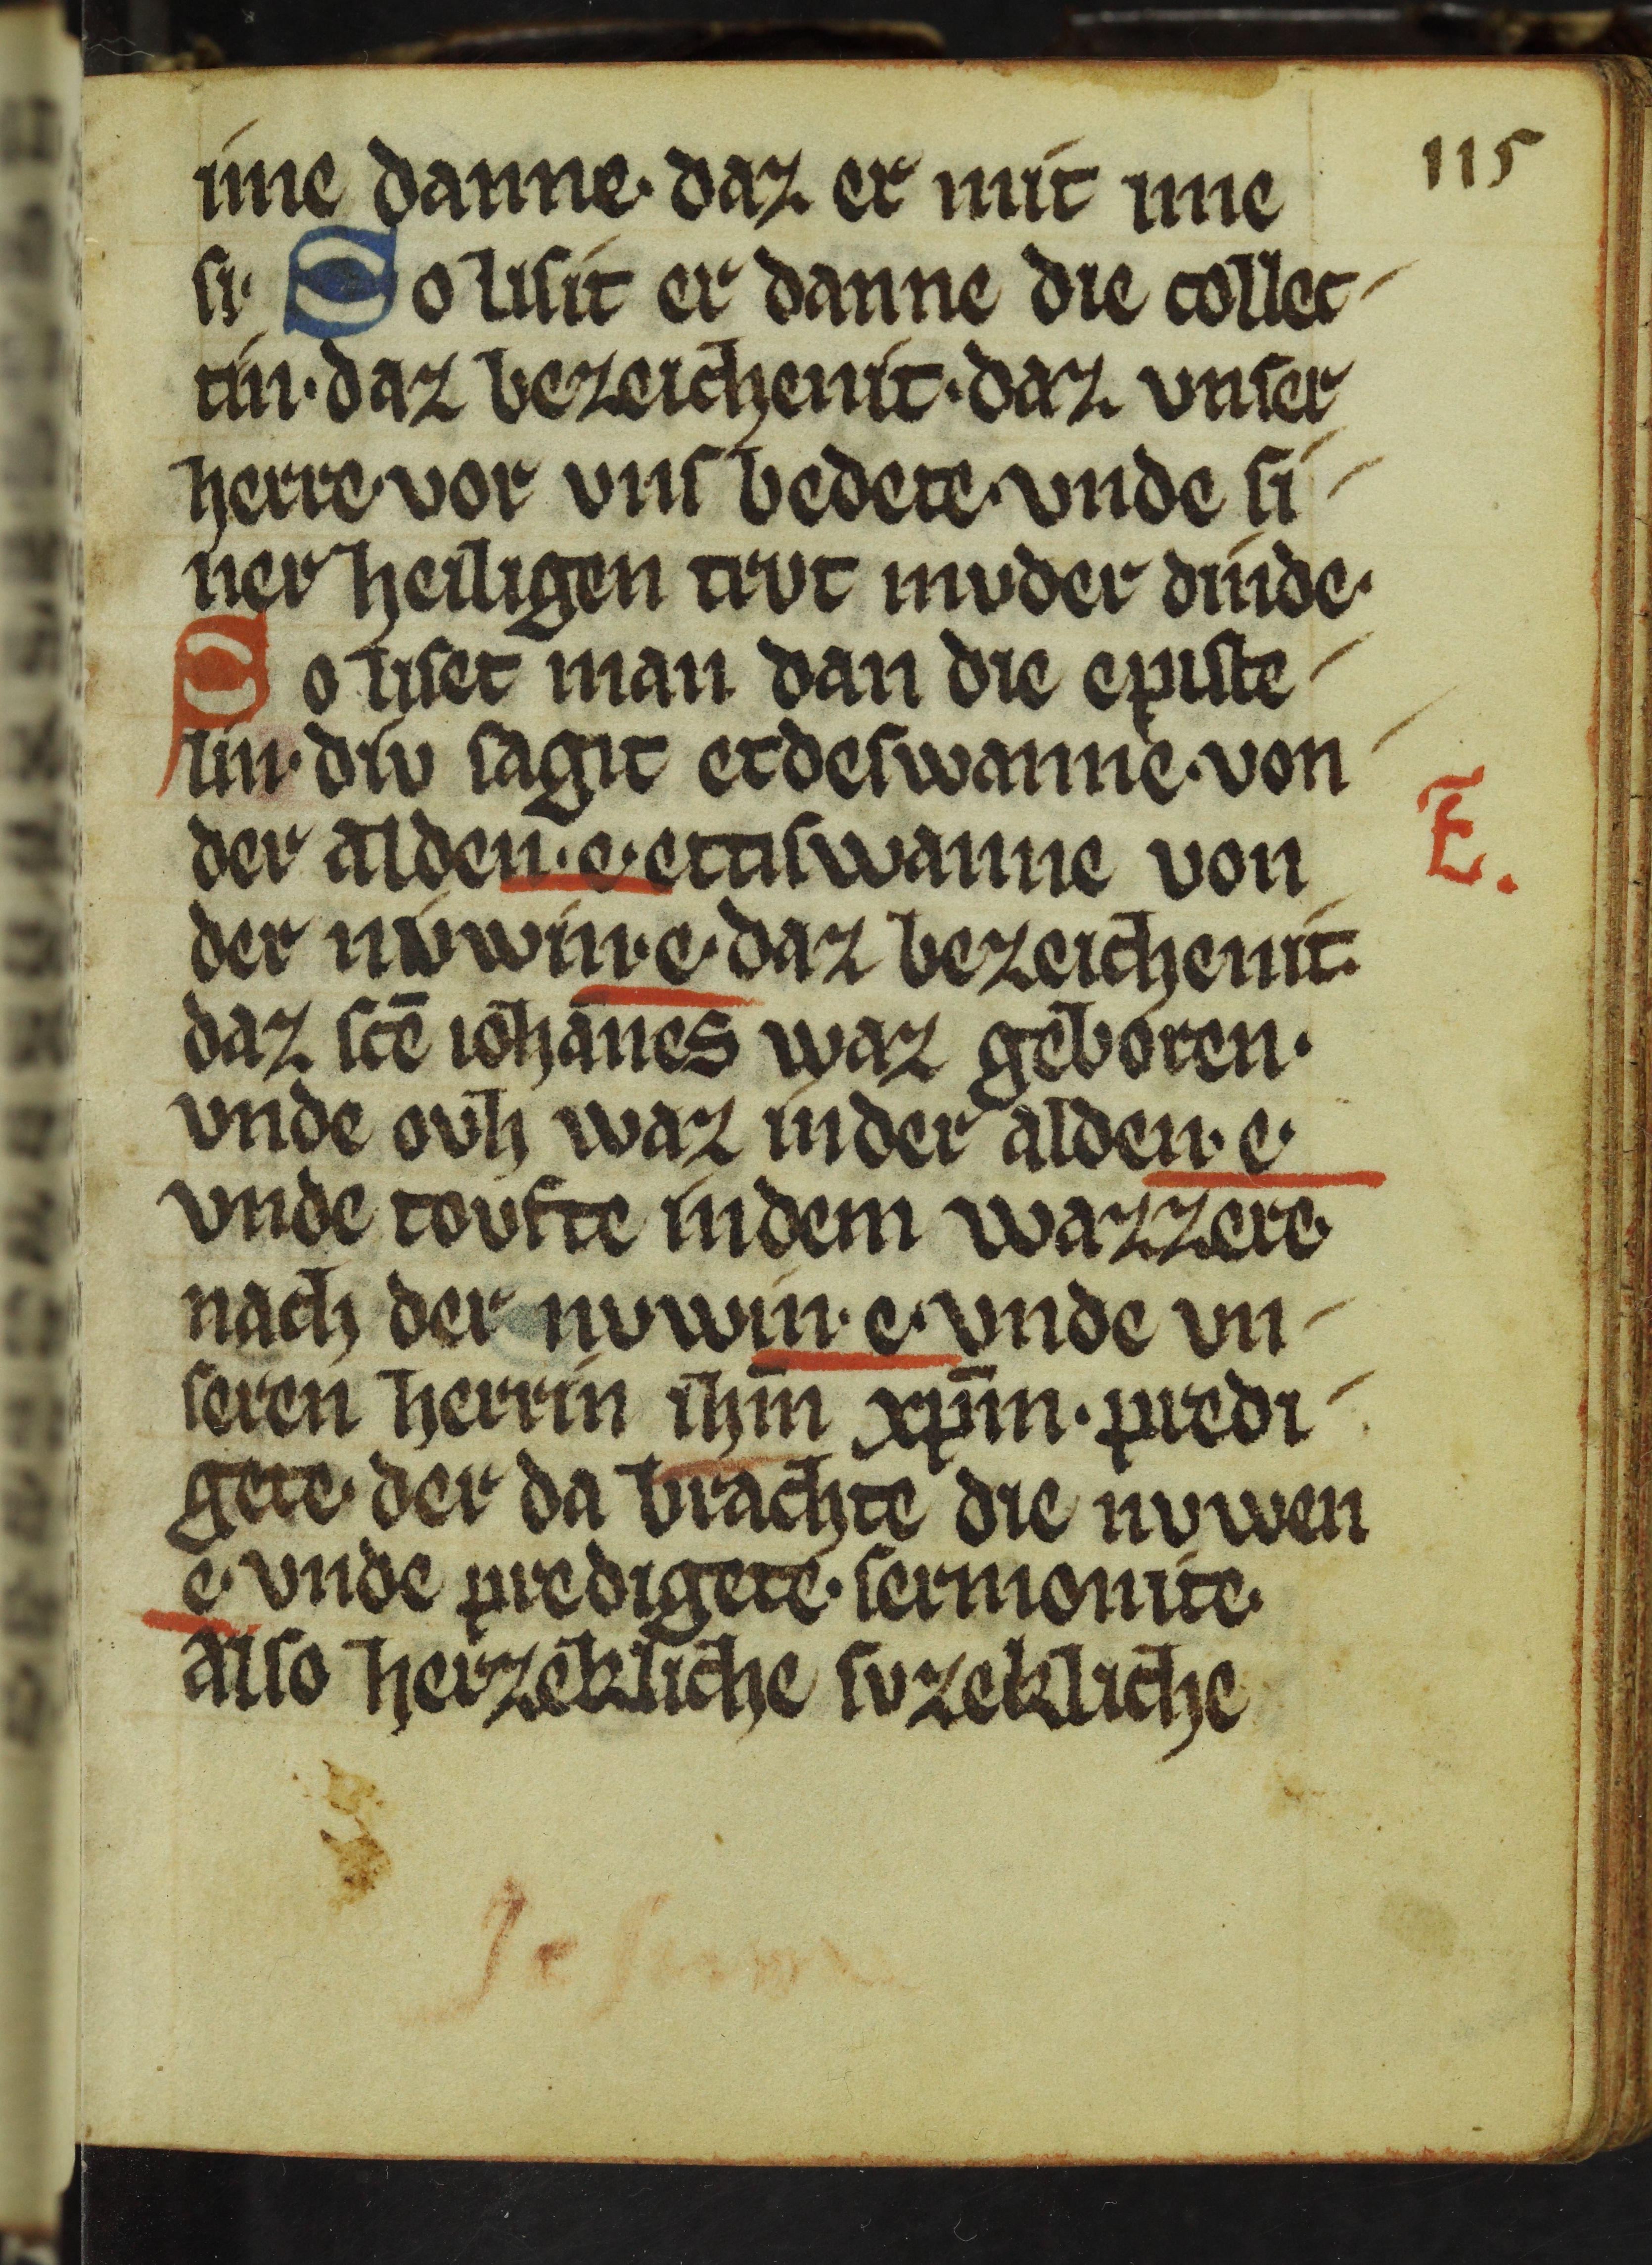 115
ime danne· daz er mit ime
si· So lisit er danne die collec-
tin· daz bezeichenit· daz vnser
herre· vor vns bedete· vnde si-
ner heiligen trvt mvder dinde·
So liset man dan die episte-
lin· div sagit etdeswanne· von
der alden· e· ettiswanne von
E.
der nvwin· e· daz bezeichenit·
daz scē iohānes waz geboren·
vnde ovh waz inder alden· e·
vnde tovfte indem wazzere·
nach der nvwin· e· vnde vn-
seren herrin ihm̄ xp̄m· predi-
gete· der da brachte die nvwen
e· vnde predigete· sermonite·
also herzekliche svzekliche